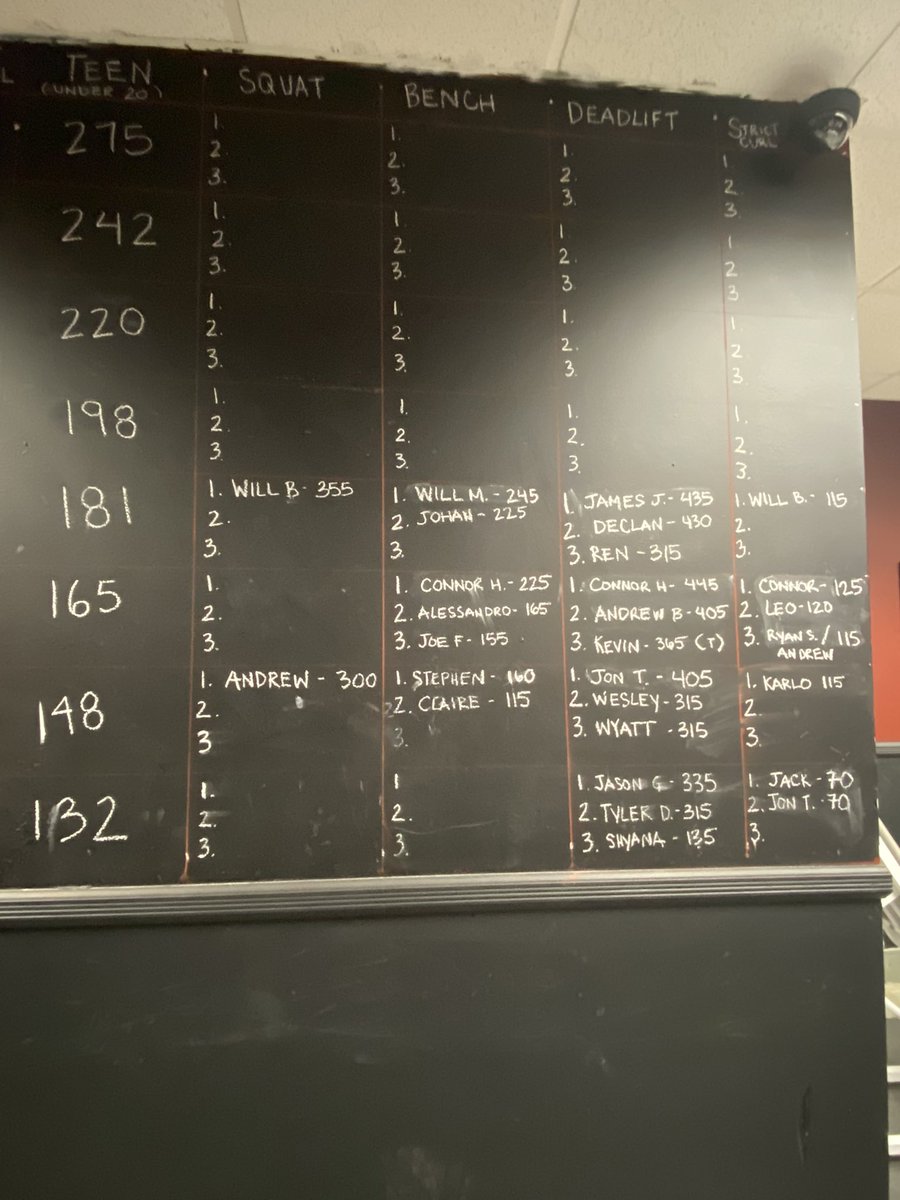 L TEEN SQUAT BENCH DEADLIFT STRICT CURL
(UNDER 20)
275 1. 1. 1. 1.
2. 2. 2. 2.
3. 3. 3. 3.
242 1. 1. 1 1
2. 2. 2. 2
3. 3. 3. 3
220 1. 1. 1. 1.
2. 2. 2. 2
3. 3. 3. 3.
198 1. 1. 1. 1.
2. 2. 2. 2.
3. 3. 3. 3.
181 1. WILL B - 355 1. WILL M. - 245 1. JAMES J. - 435 1. WILL B. - 115
2. 2. JOHAN - 225 2. DECLAN - 430 2.
3. 3. 3. REN - 315 3.
165 1. 1. CONNOR H. - 225 1. CONNOR H - 445 1. CONNOR - 125
2. 2. ALESSANDRO - 165 2. ANDREW B - 405 2. LEO - 120
3. 3. JOE F - 155 3. KEVIN - 365 (T) 3. RYAN S. / 115
ANDREW
148 1. ANDREW - 300 1. STEPHEN - 160 1. JON T. - 405 1. KARLO 115
2. 2. CLAIRE - 115 2. WESLEY - 315 2.
3 3. 3. WYATT - 315 3.
132 1. 1 1. JASON G - 335 1. JACK - 70
2. 2. 2. TYLER D. - 315 2. JON T. - 70
3. 3. 3. SHYANA - 135 3.